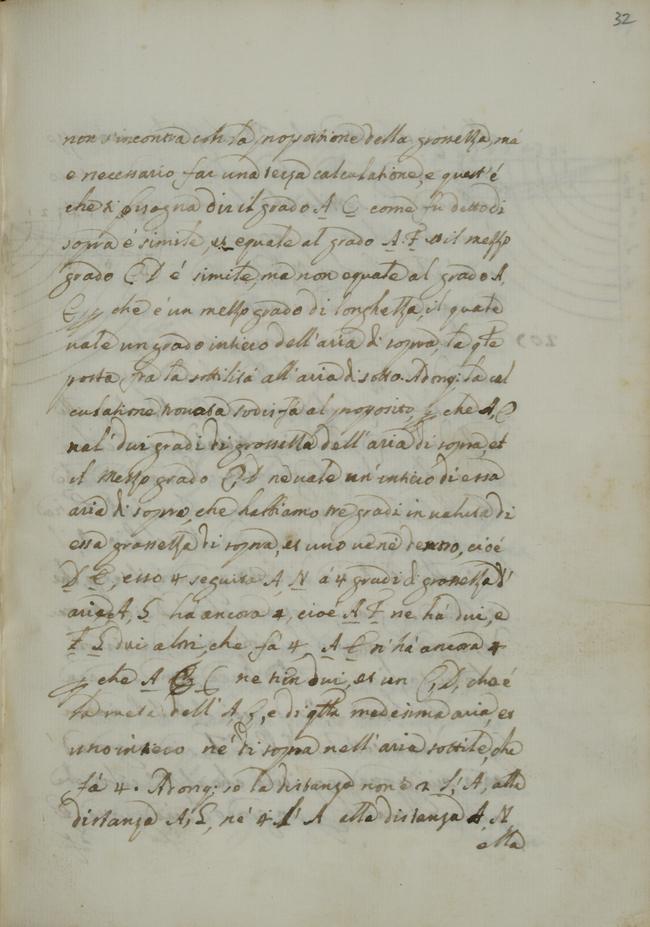 32
non s'incontra con la proporzione della grossezza, má
e necessario far una terza calculatione, e quest'é
che si bisogna dir il grado A C come fu detto di
sopra é simile, et equale al grado A: F et il mezzo
grado C D é simile, ma non equale al grado A,
che é un mezzo grado di longhezza, il quale
uale un grado intiero dell'aria di sopra, la qle
posta fra la sottilitá all'aria di sotto. Adonq: la cal
culatione trouata sodisfá al proposito che A, C
ual' dui gradi di grossezza dell'aria di sopra, et
il mezzo grado C, D ne uale un'intiero di essa
aria di sopra, che habbiamo tre gradi in ualuta di
essa grossezza di sopra, et uno uené dentro, cioé
D E, ecco 4 seguita A, N á 4 gradi di grossezza d'
aria A, S há ancora 4, cioé A F ne há dui, e
F S dui altri, che fá 4, A E n'há ancora 4
che A C ne tien dui, et un C, D, che é
la metá dell' A, e di qsta medesima aria, et
uno intiero né di sopra nell'aria sottile, che
fá 4. Adonq: se la distanza non é 2 A, alla
distanza A, S, né 4 A alla distanza A, N
alla